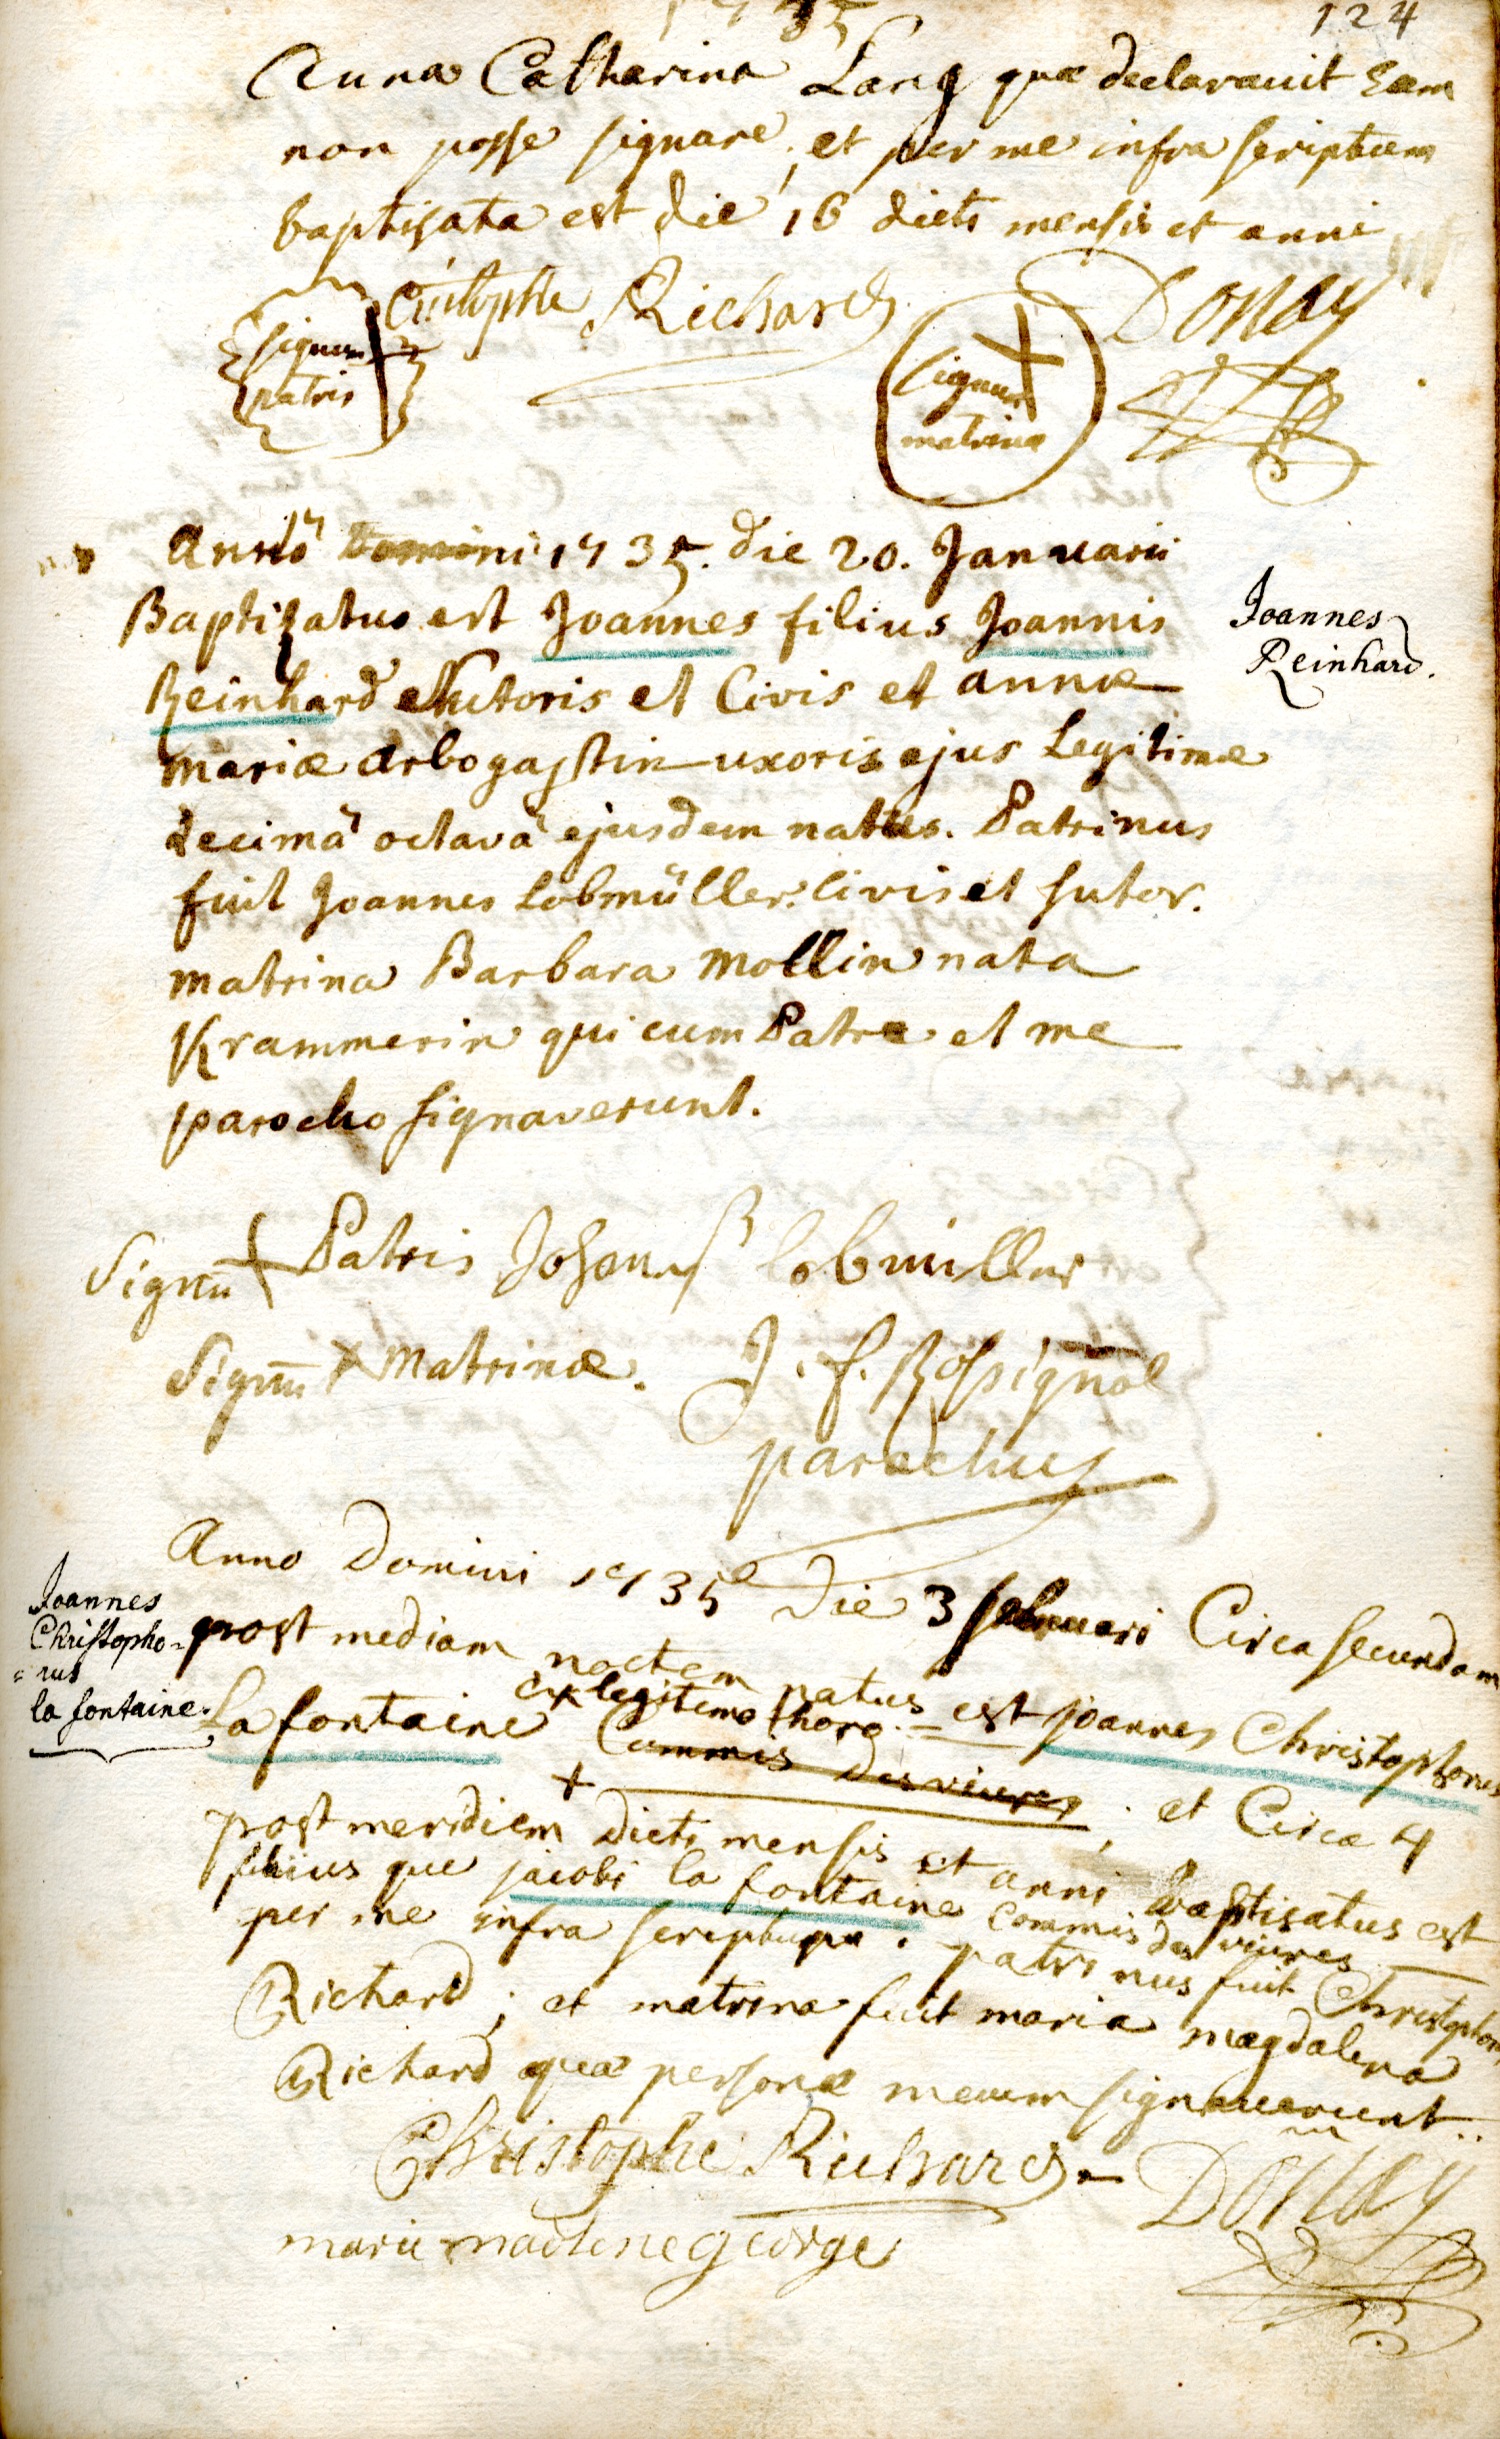 1735
124
Anna Catharina Lang quæ declaravit Eam
non posse signare, et per me infra scriptum
baptisata est die 16 dicti mensis et anni
Christophe Richard Donay
signum
patris
signum
matrinæ
Anno Domini 1735. die 20. Januarii
Baptizatus est Joannes filius Joannis
Reinhard Sutoris et Civis et annæ
mariæ arbogastin uxoris ejus Legitimæ
decimâ octavâ ejusdem natus. Patrinus
fuit Joannes Lobmüller. civis et sutor.
matrina Barbara Mollin nata
Krammerin qui cum Patre et me
parocho signaverunt.
Joannes
Reinhard.
Signū Patris Johannes lobmiller
Signū Matrinæ. J. f. Rossignol
parochus
Joannes
Christopho=
=rus
la fontaine.
Anno Domini 1735 Die 3 februari Circa secundam
post mediam noctem natus est joannes Christophorus
ex legitimo thoro
La fontaine Commis des vivres ; et Circa 4
post meridiem dicti mensis et anni baptisatus est
filius que jacobi la fontaine commis des vivres
per me infra scriptum. patrinus fuit Christophorus
Richard ; et matrina fuit maria magdalena
Richard quæ personæ mecum signaverunt..
Christophe Richard Donay
marie madlene george